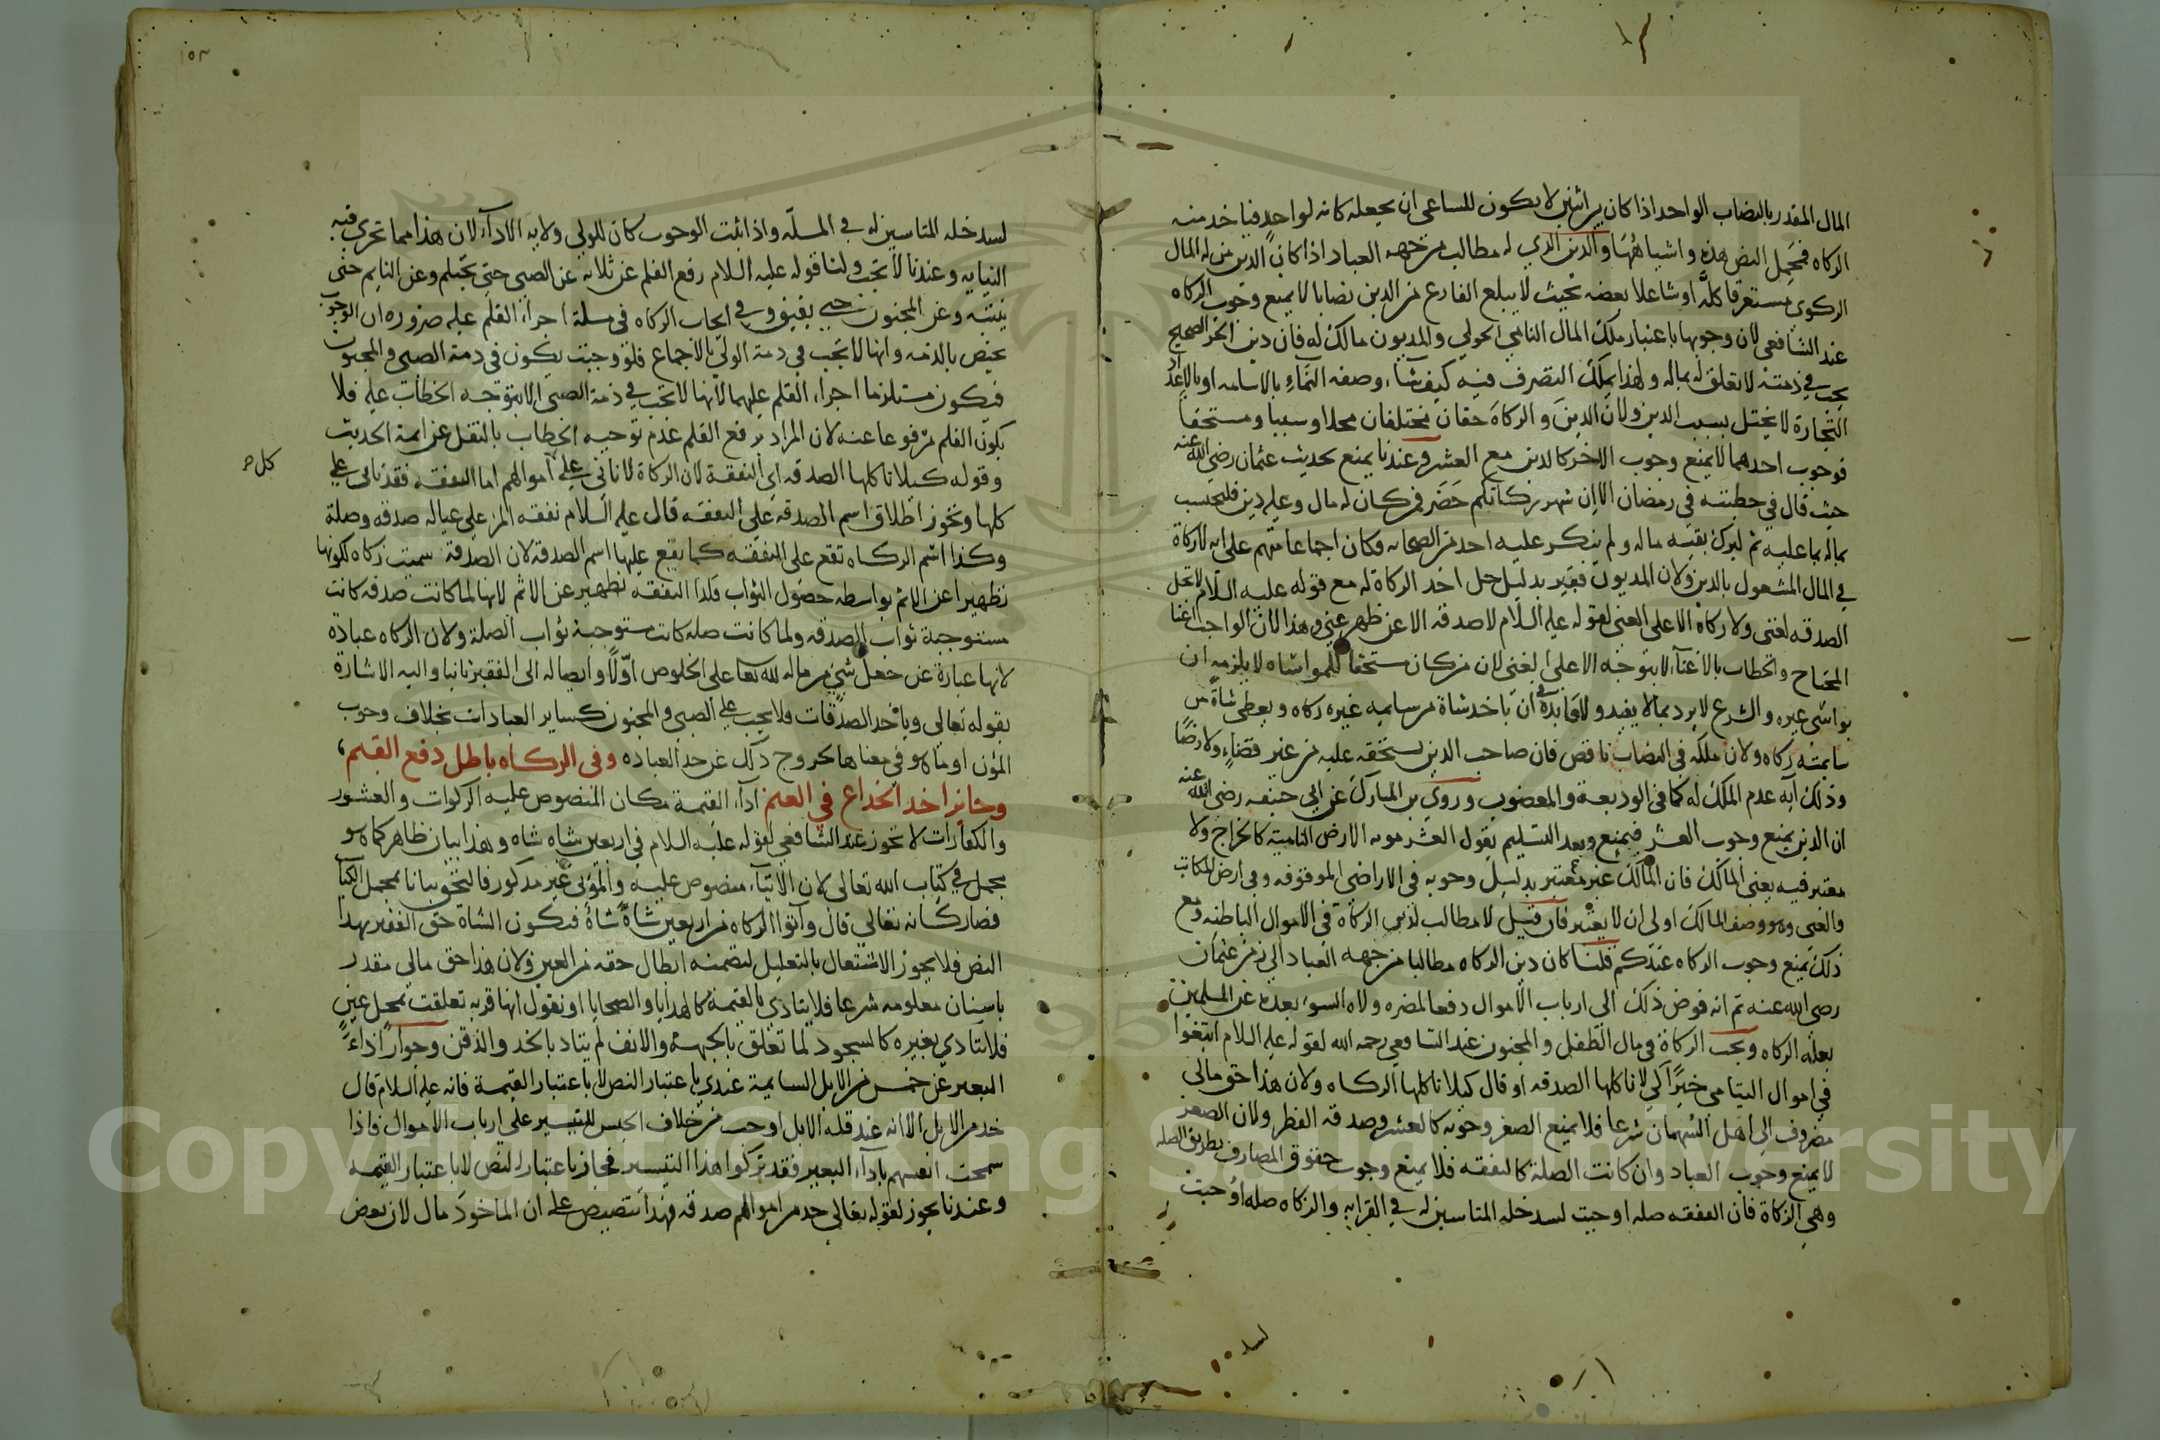 المال المقدر بالنصاب الواحد اذا كان بين اثنين لا يكون للساعى ان يجعله كانه لواحد فياخذ منه
الزكاه فيحمل النص هذه واشباهها والدين الذي له مطالب من جهه العباد اذا كان الدين من له المال
الزكوي مستغرقا كله او شاغلا بعضه بحيث لا يبلغ الفارغ من الدين نصابا لا يمنع وجوب الزكاه
عند الشافعى لان وجوبها باعتبار ملك المال النامي الحولي والمديون مالك له فان دين الحر الصحيح
يجب في ذمته لا تعلق له بماله ولهذا يملك التصرف فيه كيف شاء وصفه النماء بالاسامه او بالاعداد
التجارة لا يختل بسبب الدين ولان الدين والزكاة حقان مختلفان محلا وسببا ومستحقا
فوجوب احدهما لا يمنع وجوب الاخر كالدين مع العشر وعندنا يمنع بحديث عثمان رضي الله عنه
حيث قال في خطبته فى رمضان الا ان شهر زكاتكم حضر فمن كان له مال وعليه دين فليحتسب
بماله بما عليه ثم ليزك بقيه ماله ولم ينكر عليه احد من الصحابه فكان اجماعا منهم على انه لا زكاة
في المال المشغول بالدين ولان المديون فقير بدليل حل اخذ الزكاة له مع قوله عليه السلام لا تحل
الصدقه لغنى ولا زكاة الا على الغنى لقوله عليه السلام لا صدقه الا عن ظهر غنى وهذا لان الواجب اغنا
المحتاج والخطاب بالاغناء لا يتوجه الا على الغنى لان من كان مستحقا للمواساه لا يلزمه ان
يواسى غيره والشرع لا يرد بما لا يفيد ولا فايدة فى ان ياخذ شاة من سايمه غيره زكاه ويعطى شاة من
سايمته زكاه ولان ملكه فى النصاب ناقص فان صاحب الدين يستحقه عليه من غير قضاء ولا رضا
وذلك آيه عدم الملك له كما فى الوديعة والمغصوب وروى بن المبارك عن ابي حنيفه رضي الله عنه
ان الدين يمنع وجوب العشر فيمنع وبعد التسليم نقول العشر مونه الارض النامية كالخراج ولا
معتبر فيه بغنى المالك فان المالك غير معتبر بدليل وجوبه فى الاراضى الموقوفه وفى ارض المكاتب
والغنى وهو وصف المالك اولى ان لا يعتبر فان قيل لا مطالب لدين الزكاة فى الاموال الباطنه ومع
ذلك يمنع وجوب الزكاه عندكم قلنا كان دين الزكاه مطالبا من جهه العباد الى زمن عثمان
رضى الله عنه ثم انه فوض ذلك الى ارباب الاموال دفعا لمضره ولاه السوء بعده عن المسلمين
بعله الزكاه وتجب الزكاة فى مال الطفل والمجنون عند الشافعي رحمه الله لقوله عليه السلام ابتغوا
في اموال اليتامى خيرا كي لا تاكلها الصدقه او قال كيلا تاكلها الزكاه ولان هذا حق مالى
مصروف الى اهل السهمان شرعا فلا يمنع الصغر وجوبه كالعشر وصدقه الفطر ولان الصغر
لا يمنع وجوب العباد وان كانت الصلة كالنفقه فلا يمنع وجوب حقوق المصارف بطريق الصله
وهى الزكاة فان النفقه صله اوجبت لسد خله المناسبين له في القرابه والزكاه صله اوجبت
لسد
لسد خله المناسبين له في الملة واذا ثبت الوجوب كان للولي ولايه الاداء لان هذا مما تجرى فيه
النيابه وعندنا لا تجب ولنا قوله عليه السلام رفع القلم عن ثلاثه عن الصبى حتى يحتلم وعن النايم حتى
ينتبه وعن المجنون حتى يفيق وفى ايجاب الزكاه فى مسلة اجراء القلم عليه ضرورة ان الوجوب
يختص بالذمه وانها لا تجب في ذمة الولى بالاجماع فلو وجبت يكون فى ذمة الصبى والمجنون
فيكون مستلزما اجراء القلم عليهما لانها لا تجب في ذمة الصبى الا بتوجه الخطاب عليه فلا
يكون القلم مرفوعا عنه لان المراد برفع القلم عدم توجيه الخطاب بالنقل عن ايمة الحديث
وقوله كيلا تاكلها الصدقه اى النفقة لان الزكاة لا تاتى على اموالهم اما النفقه فقد تاتى على
كلها ويجوز اطلاق اسم الصدقه على النفقه قال عليه السلام نفقه المرء على عياله صدقه وصلة
وكذا اسم الزكاه تقع على النفقه كما يقع عليها اسم الصدقه لان الصدقة سميت زكاه لكونها
تطهيرا عن الاثم بواسطه حصول الثواب فكذا النفقه تطهير عن الاثم لانها لما كانت صدقه كانت
مستوجبة ثواب الصدقه ولما كانت صله كانت مستوجبة ثواب الصلة ولان الزكاه عبادة
لانها عبارة عن جعل شئ من ماله لله تعا على الخلوص اولا وايصاله الى الفقير ثانيا واليه الاشارة
بقوله تعالى وياخذ الصدقات فلا يجب على الصبى والمجنون كساير العبادات بخلاف وجوب
المؤن او ما هو في معناها لخروج ذلك عن حد العباده وفى الزكاه باطل دفع القيم
وجائز اخذ الجذاع في الغنم اداء القيمة مكان المنصوص عليه الزكوات والعشور
والكفارات لا يجوز عند الشافعي لقوله عليه السلام في اربعين شاه شاه وهذا بيان ظاهر كما هو
مجمل في كتاب الله تعالى لان الايتاء منصوص عليه والمؤتى غير مذكور فالتحق بيانا بمجمل الكتاب
فصار كانه تعالى قال وآتوا الزكاه من اربعين شاة شاة فتكون الشاة حق الفقير بهذا
النص فلا يجوز الاشتغال بالتعليل لتضمنه ابطال حقه من العين ولان هذا حق مالي مقدر
باسنان معلومه شرعا فلا يتادى بالقيمة كالهدايا والضحايا او نقول انها قربه تعلقت بمحل عين
فلا تتادى بغيره كالسجود لما تعلق بالجبهة والانف لم يتاد بالخد والذقن وجواز اداء
البعير عن خمس من الابل السايمة عندي باعتبار النص لا باعتبار القيمة فانه عليه السلام قال
خذ من الابل الا انه عند قلة الابل اوجب من خلاف الجنس للتيسير على ارباب الاموال فاذا
سمحت انفسهم باداء البعير فقد تركوا هذا التيسير فجاز باعتبار النص لا باعتبار القيمه
وعندنا يجوز لقوله تعالى خذ من اموالهم صدقه فهذا تنصيص على ان الماخوذ مال لان بعض
Copyright © King Saud University